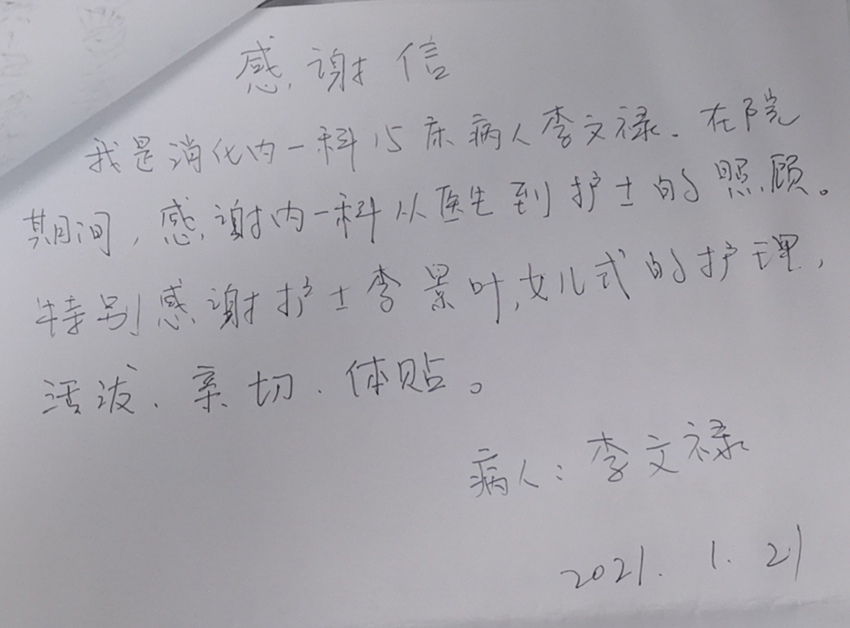 感谢信
我是消化内一科15床病人李文禄.在院
期间,感谢内一科从医生到护士的照顾。
特别感谢护士李景叶,女儿式的护理,
活泼、亲切、体贴。
病人:李文禄
2021.1.21